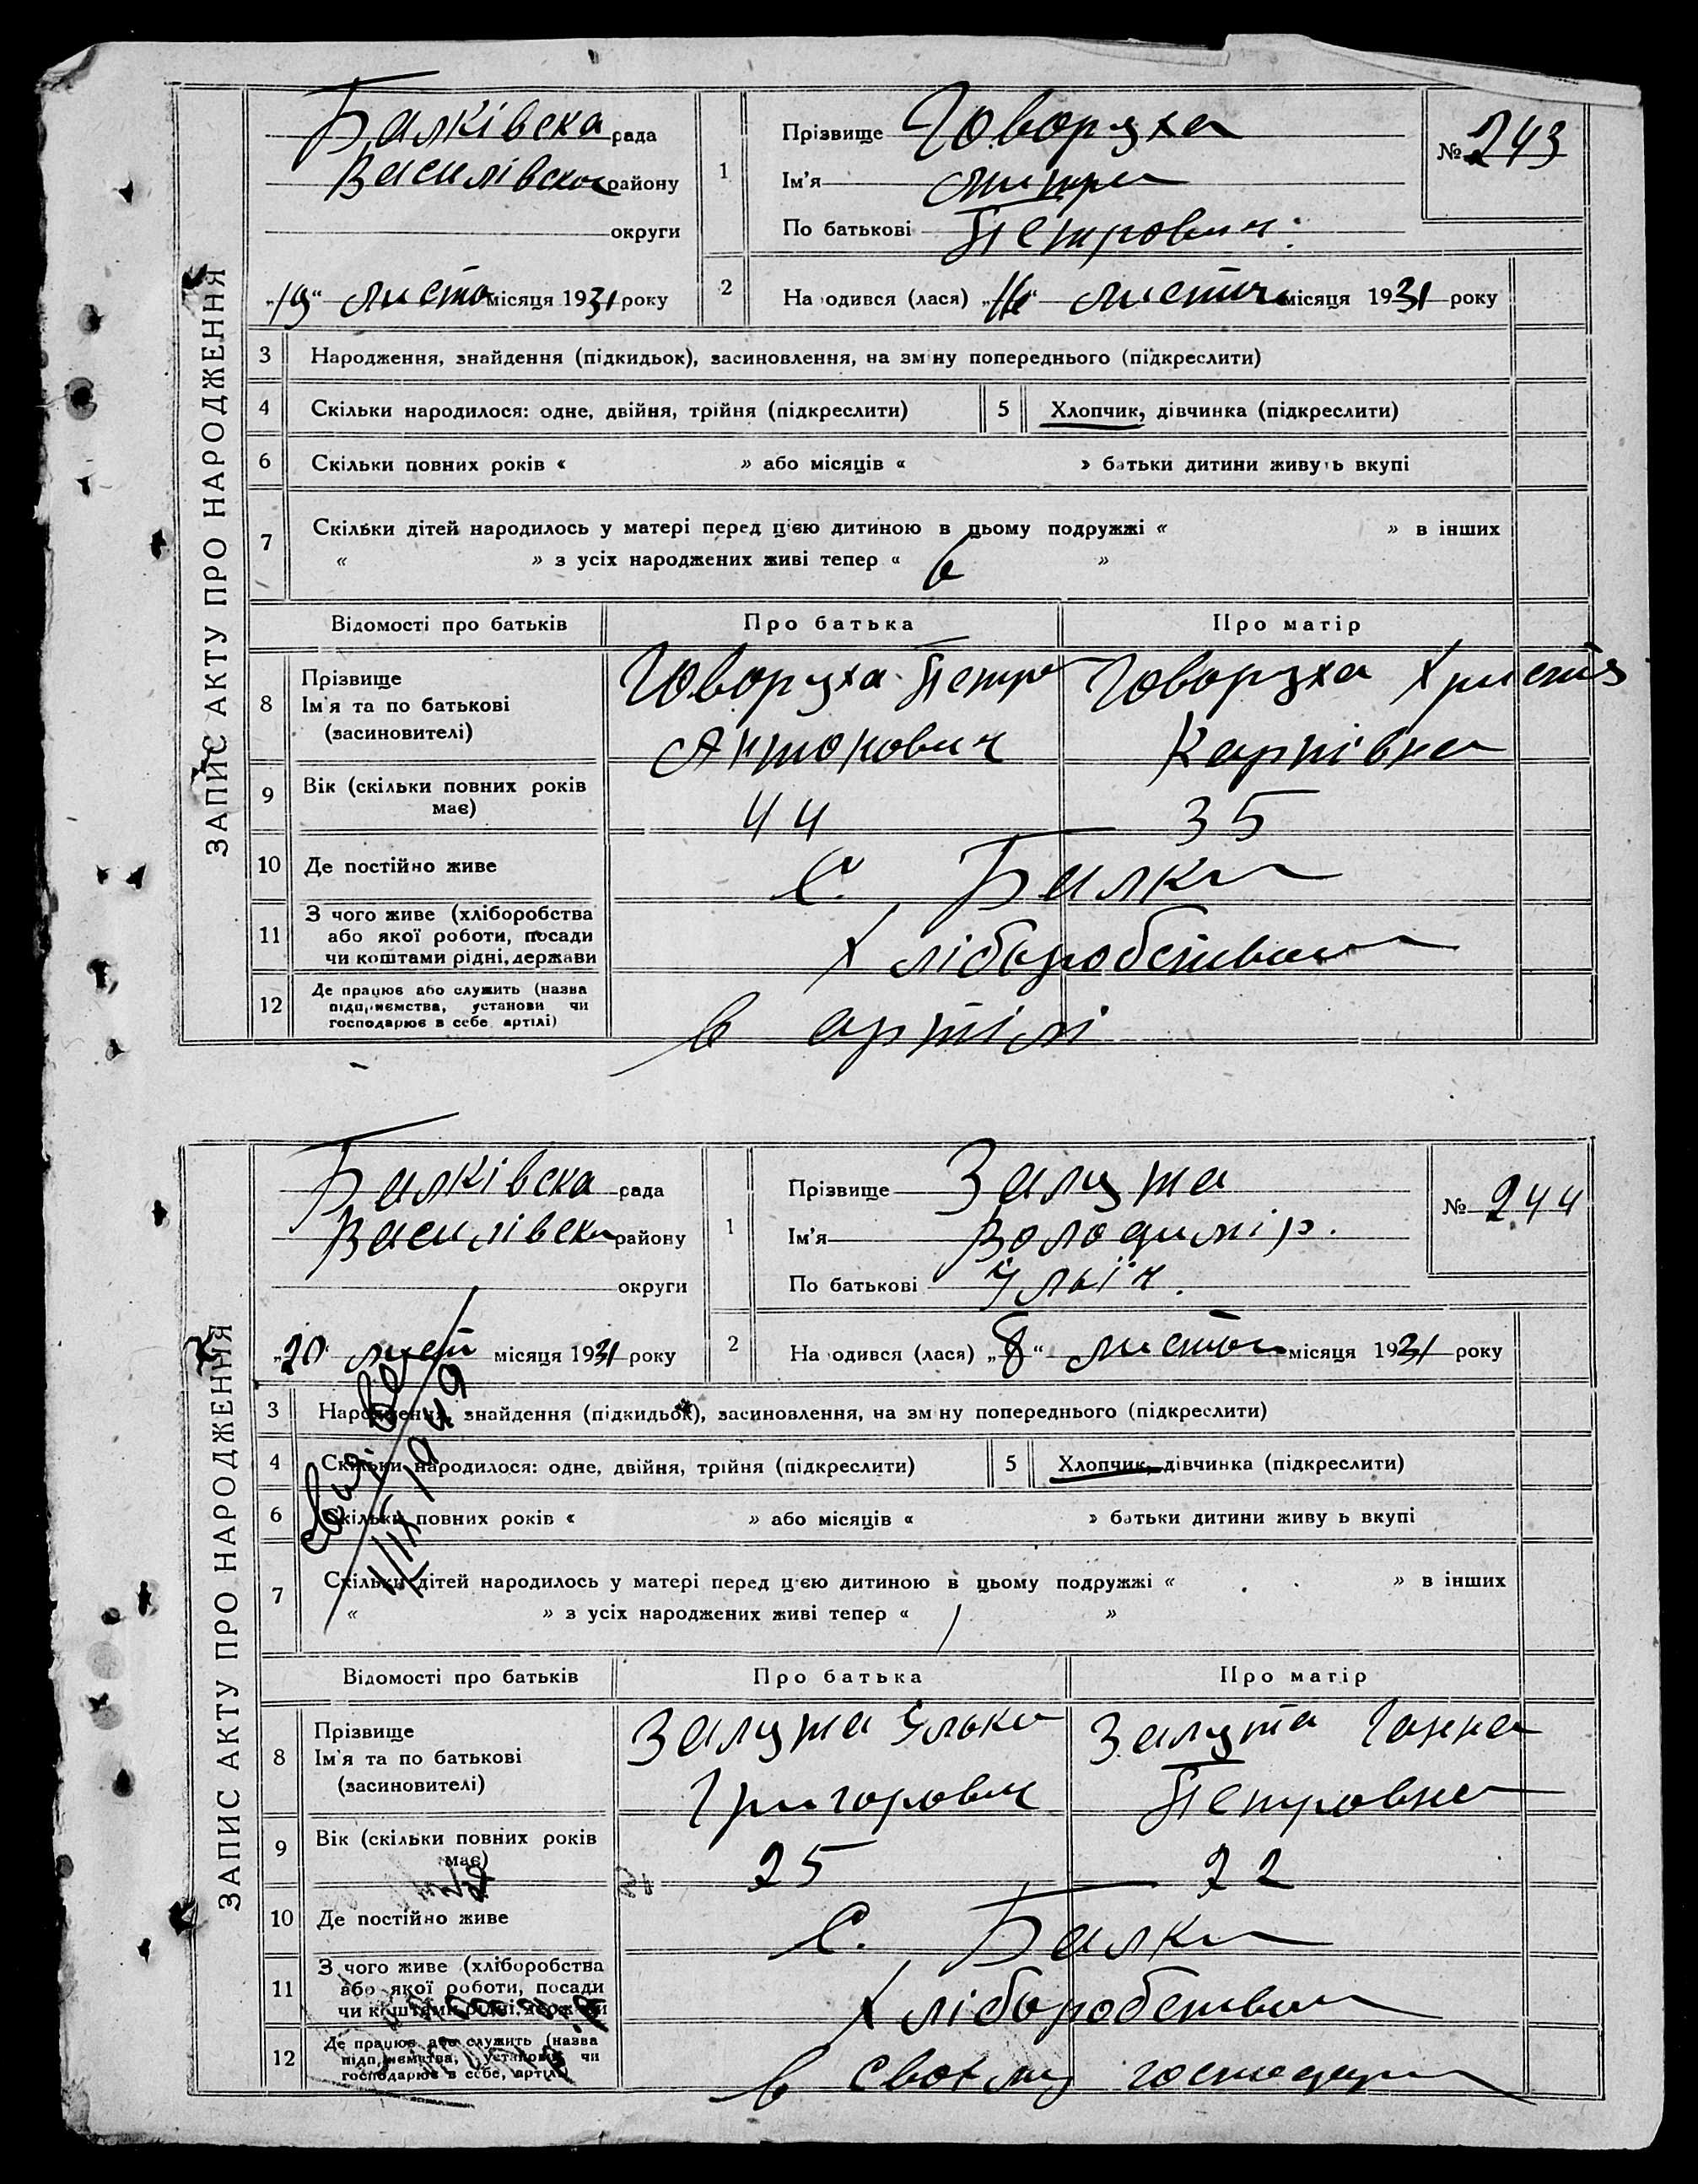 ЗАПИС АКТУ ПРО НАРОДЖЕННЯ
Балківска рада
Василівско району
округи
„19“ листо місяця 1931 року
1
Прізвище Говоруха
Ім'я
По батькові Петрович.
№ 243
2
На одився (лася) „16“ листоч місяця 1931 року
3 Народження, знайдення (підкидьок), засиновлення, на зм ну попереднього (підкреслити)
4 Скільки народилося: одне, двійня, трійня (підкреслити) 5 Хлопчик, дівчинка (підкреслити)
6 Скільки повних років « » або місяців « » батьки дитини живуть вкупі
7 Скільки дітей народилось у матері перед цією дитиною в цьому подружжі « » в інших
« » з усіх народжених живі тепер « 6 »
Відомості про батьків Про батька Про матір
8 Прізвище
Ім'я та по батькові
(засиновителі)
Говоруха Петро
Антонович
Говоруха Христя
Карпівна
9 Вік (скільки повних років
має)
44 35
10 Де постійно живе
с. Балки
11 З чого живе (хліборобства
або якої роботи, посади
чи коштами рідні, держави
Хліборобством
12 Де працює або служить (назва
підприємства, установи чи
господарює в себе, артілі)
в артілі
ЗАПИС АКТУ ПРО НАРОДЖЕННЯ
Балківска рада
Василівско району
округи
„20“ лист місяця 1931 року
1
Прізвище Залута
Ім'я Володимір.
По батькові Ільїч.
№ 244
2
На одився (лася) „8“ листоп місяця 1931 року
3 Народження, знайдення (підкидьок), засиновлення, на зм ну попереднього (підкреслити)
4 Скільки народилося: одне, двійня, трійня (підкреслити) 5 Хлопчик, дівчинка (підкреслити)
6 Скільки повних років « » або місяців « » батьки дитини живу ь вкупі
7 Скільки дітей народилось у матері перед цією дитиною в цьому подружжі « » в інших
« » з усіх народжених живі тепер « 1 »
Відомості про батьків Про батька Про матір
8 Прізвище
Ім'я та по батькові
(засиновителі)
Залута Ілько
Григорович
Залута Ганна
Петровна
9 Вік (скільки повних років
має)
25 22
10 Де постійно живе
с. Балки
11 З чого живе (хліборобства
або якої роботи, посади
чи коштами рідні, держави
Хліборобством
12 Де працює або служить (назва
підприємства, установи чи
господарює в себе, артілі)
в своєму господар